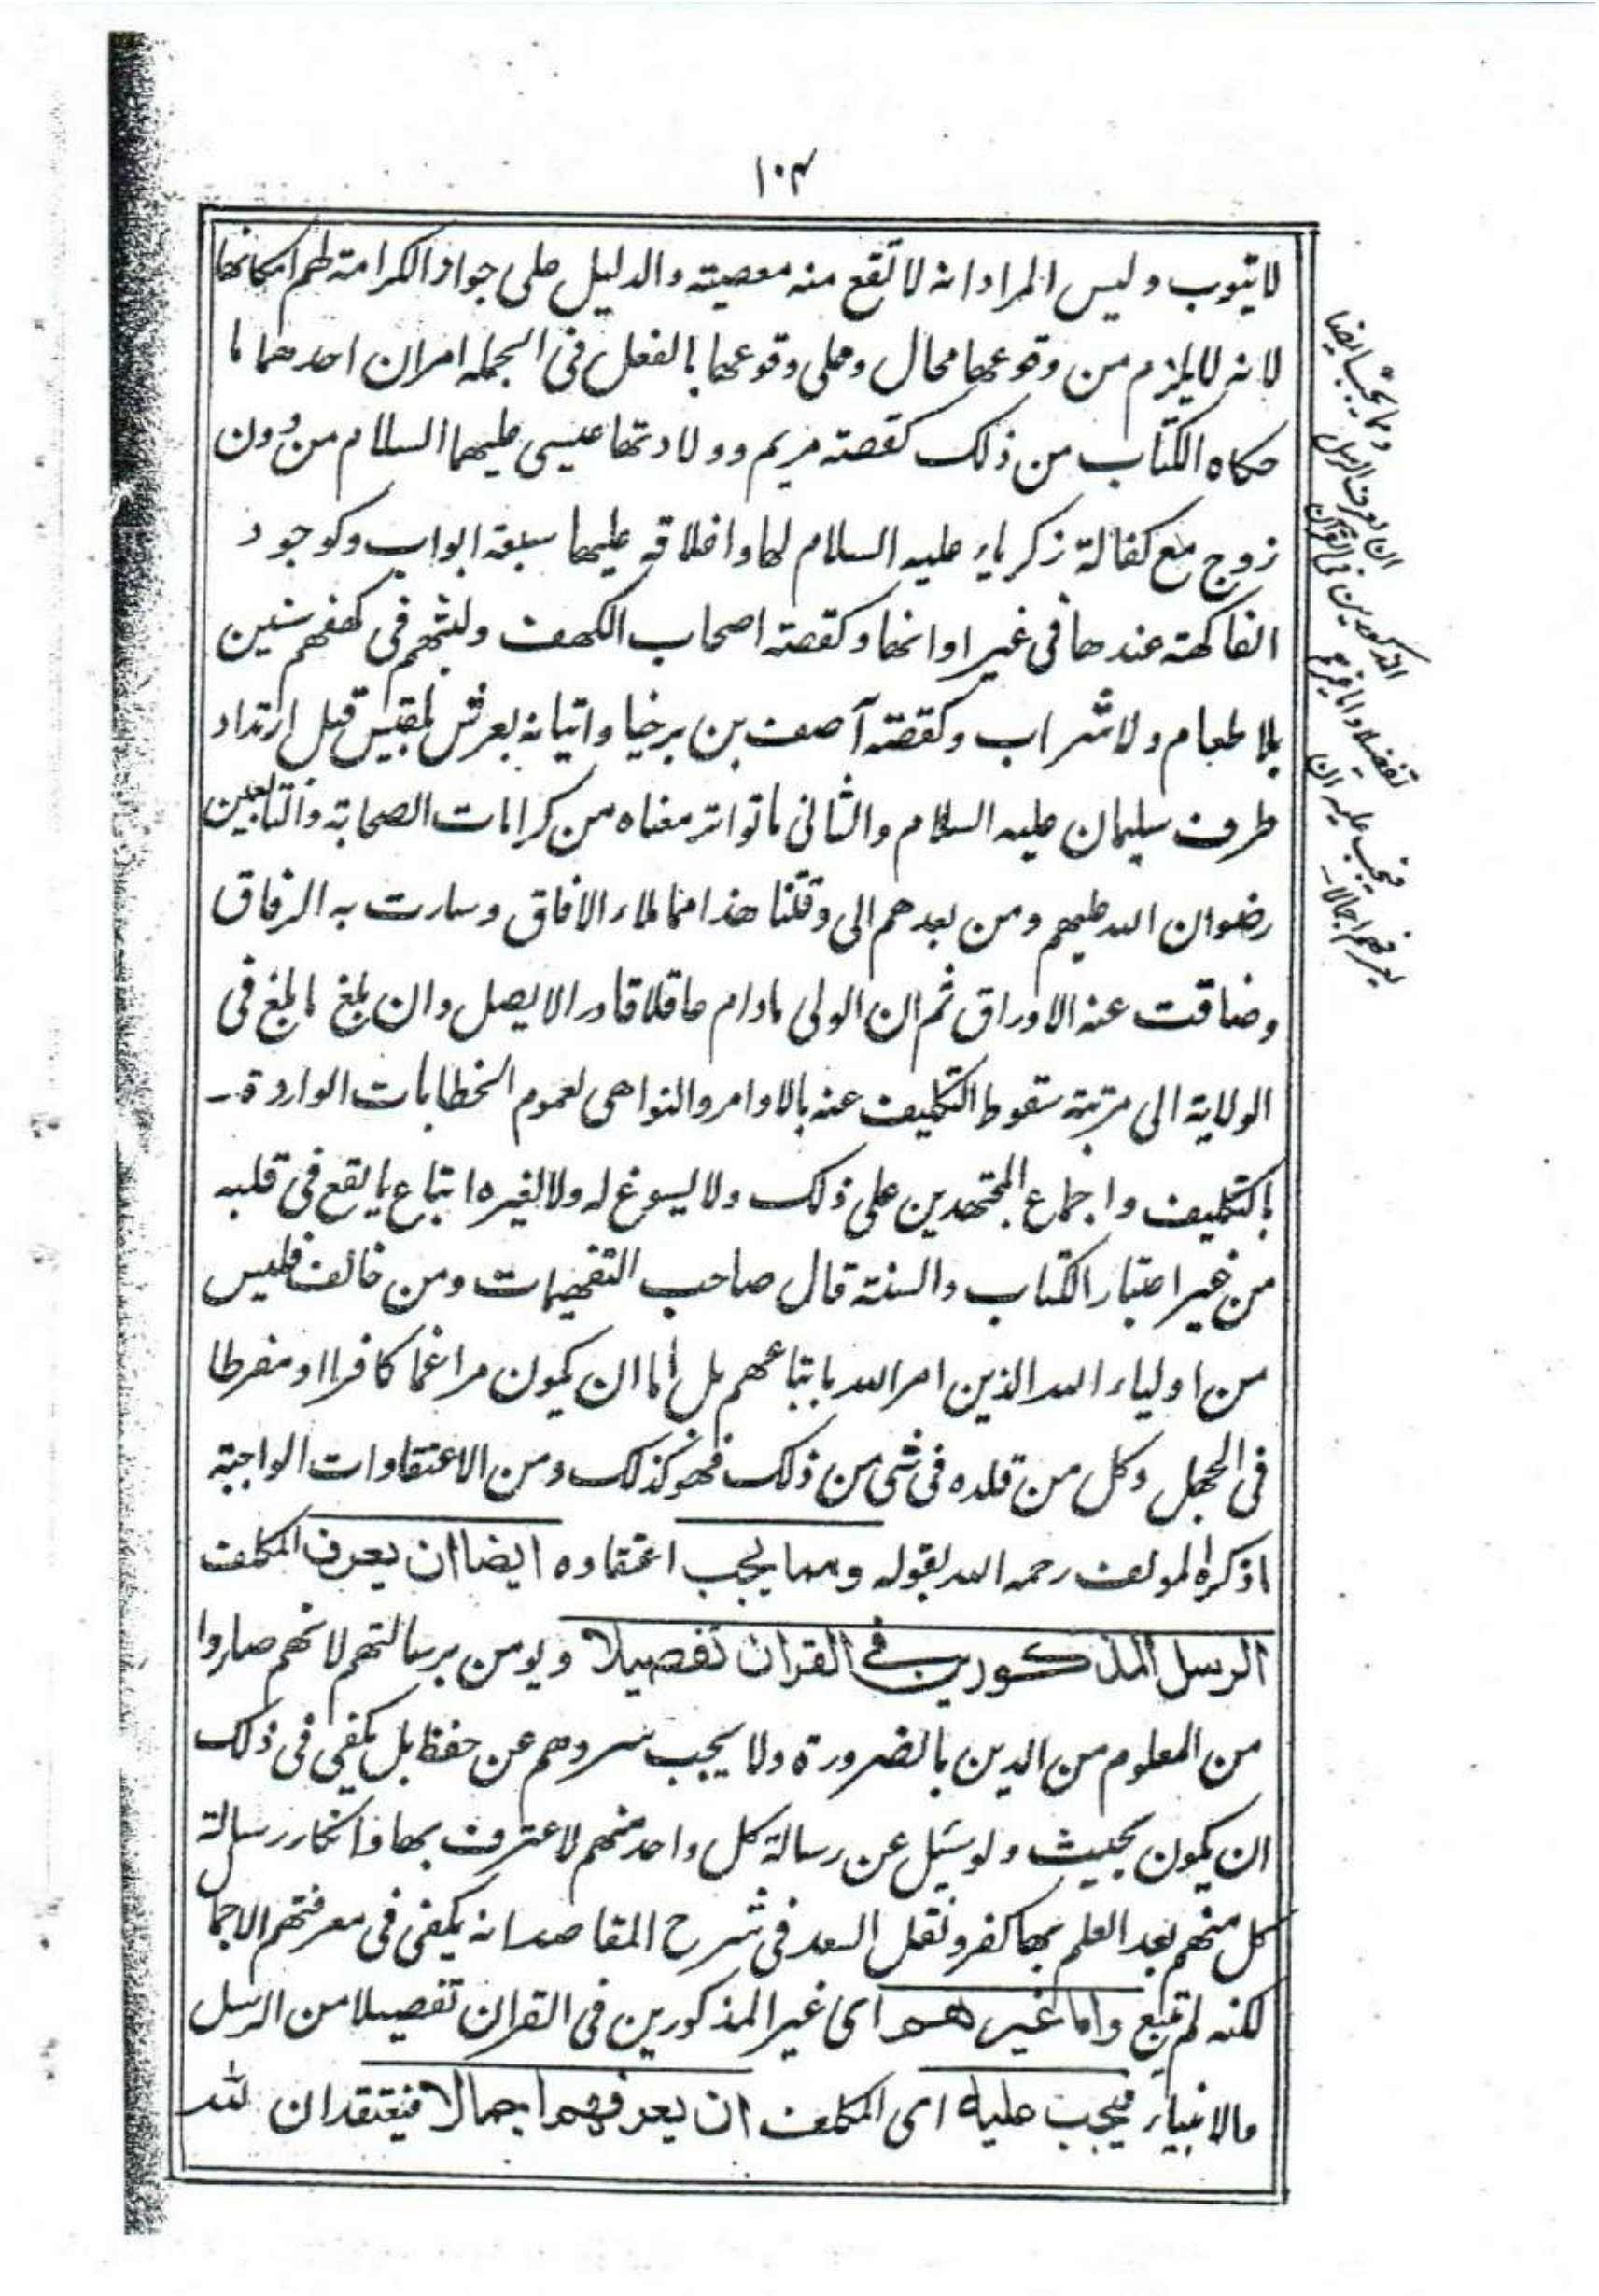 ١٠٣
لا يتوب وليس المراد انه لا تقع منه معصيته والدليل على جواز الكرامته لهم امكانها
لانه لا يلزم من وقوعها محال وعلى وقوعها بالفعل فى الجمله امران احدهما ما
حكاه الكتاب من ذلك كقصته مريم وولادتها عيسى عليهما السلام من دون
زوج مع كفالة زكرياء عليه السلام لها واغلاقه عليها سبعة ابواب وكوجود
الفاكهته عندها فى غير اوانها وكقصته اصحاب الكهف ولبثهم فى كهفهم سنين
بلا طعام ولا شراب وكقصته آصف بن برخيا واتيانه بعرش بلقيس قبل ارتداد
طرف سليمان عليه السلام والثانى ما تواتر معناه من كرامات الصحابة والتابعين
رضوان الله عليهم ومن بعدهم الى وقتنا هذا مما ملاء الافاق وسارت به الرفاق
وضاقت عنه الاوراق ثم ان الولى مادام عاقلا قادرا لا يصل وان بلغ ما بلغ فى
الولاية الى مرتبته سقوط التكليف عنه بالاوامر والنواهى لعموم الخطابات الواردة۔
بالتكليف واجماع المجتهدين على ذلك ولا يسوغ له ولا لغيره اتباع ما يقع فى قلبه
من غير اعتبار الكتاب والسنته قال صاحب التفهيمات ومن خالف فليس
من اولياء الله الذين امر الله باتباعهم بل اما ان يكون مراغما كافرا او مفرطا
فى الجهل وكل من قلده فى شئ من ذلك فهو كذلك ومن الاعتقادات الواجبته
ما ذكره المولف رحمه الله بقوله ومما يجب اعتقاده ايضا ان يعرف المكلف
الرسل المذكورين فى القران تفصيلا ويومن برسالتهم لانهم صاروا
من المعلوم من الدين بالضرورة ولا يجب سردهم عن حفظ بل يكفى فى ذلك
ان يكون بحيث ولو سئيل عن رسالة كل واحد منهم لاعترف بها وانكار رسالة
كل منهم بعد العلم بها كفر ونقل السعد فى شرح المقاصد انه يكفى فى معرفتهم الاجما
لكنه لم يتبع واما غيرهم اى غير المذكورين فى القران تفصيلا من الرسل
والانبياء فيجب عليه اى المكلف ان يعرفهم اجمالا فيعتقد ان لله
ومما يجب ايضا
ان يعرف الرسل
المذكورين فى القران
تفصيلا واما غيرهم
فيجب عليه ان
يعرفهم اجمالا۔